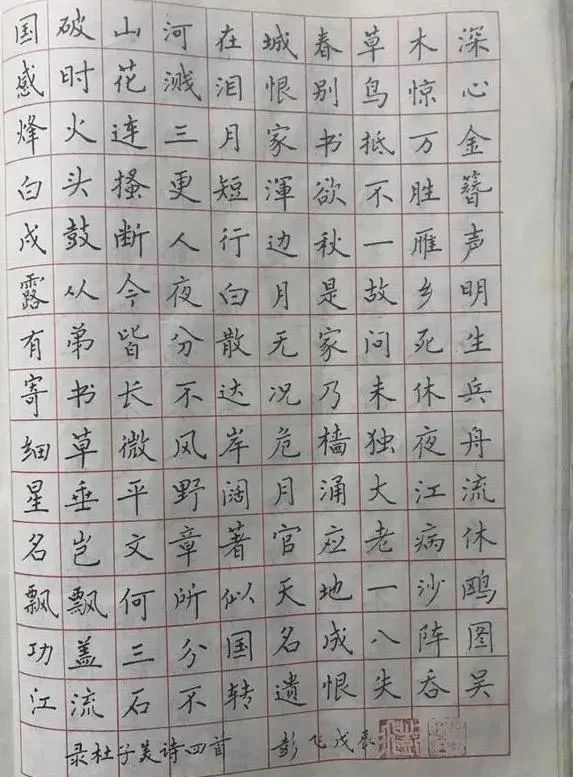 国破山河在城春草木深
感时花溅泪恨别鸟惊心
烽火连三月家书抵万金
白头搔更短渾欲不胜簪
戍鼓断人行边秋一雁声
露从今夜白月是故乡明
有弟皆分散无家问死生
寄书长不达况乃未休兵
细草微风岸危樯独夜舟
星垂平野阔月涌大江流
名岂文章著官应老病休
飘飘何所似天地一沙鸥
功盖三分国名成八阵图
江流石不转遗恨失吞吴
录杜子美诗四首 彭飞戊辰